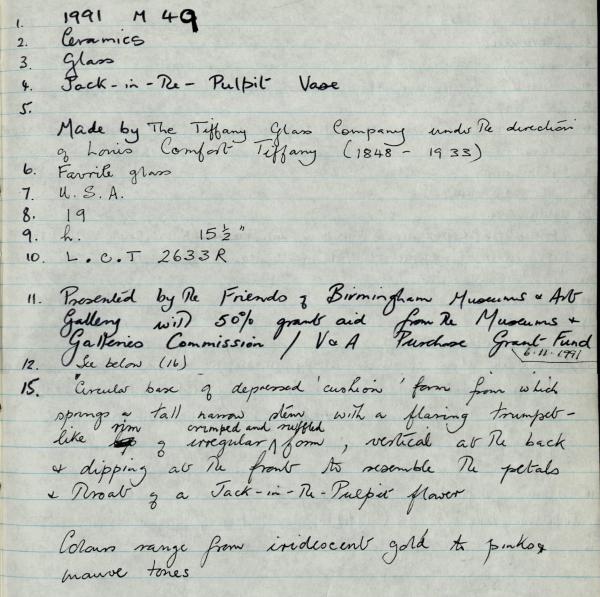 1. 1991 M 49
2. Ceramics
3. Glass
4. Jack-in-the-Pulpit Vase
5.
Made by The Tiffany Glass Company under the direction
of Louis Comfort Tiffany (1848 - 1933)
6. Favrile glass
7. U.S.A.
8. 19
9. h. 15½"
10. L.C.T 2633R
11. Presented by the Friends of Birmingham Museums & Art
Gallery with 50% grant aid from the Museums &
Galleries Commission / V&A Purchase Grant Fund
6.11.1991
12. See below (16)
15. Circular base of depressed 'cushion' form from which
springs a tall narrow stem with a flaring trumpet-
like rim of irregular crimped and ruffled form, vertical at the back
& dipping at the front to resemble the petals
& throat of a Jack-in-the-Pulpit flower
Colours range from iridescent gold to pinks &
mauve tones